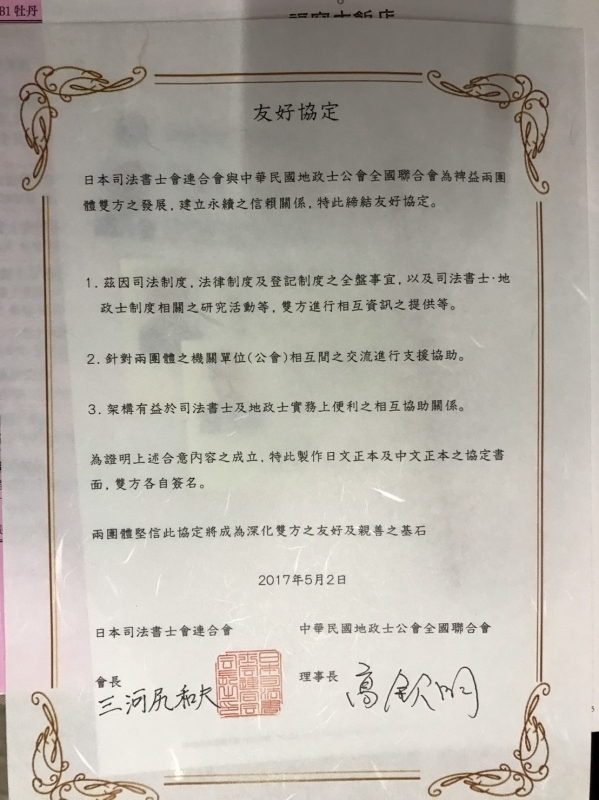 B1 牡丹
友好協定
日本司法書士會連合會與中華民國地政士公會全國聯合會為裨益兩團
體雙方之發展，建立永續之信賴關係，特此締結友好協定。
1. 茲因司法制度，法律制度及登記制度之全盤事宜，以及司法書士·地
政士制度相關之研究活動等，雙方進行相互資訊之提供等。
2. 針對兩團體之機關單位(公會)相互間之交流進行支援協助。
3. 架構有益於司法書士及地政士實務上便利之相互協助關係。
為證明上述合意內容之成立，特此製作日文正本及中文正本之協定書
面，雙方各自簽名。
兩團體堅信此協定將成為深化雙方之友好及親善之基石
2017年5月2日
日本司法書士會連合會
中華民國地政士公會全國聯合會
會長
三河尻和夫
理事長
高欽明
5